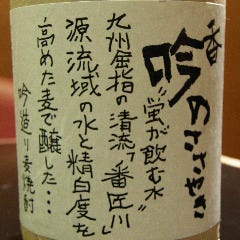 香吟のささやき
"蛍が飲む水"
九州金指の清流「番匠川」
源流域の水と精白度を
高めた麦で醸した…
吟造り麦焼酎